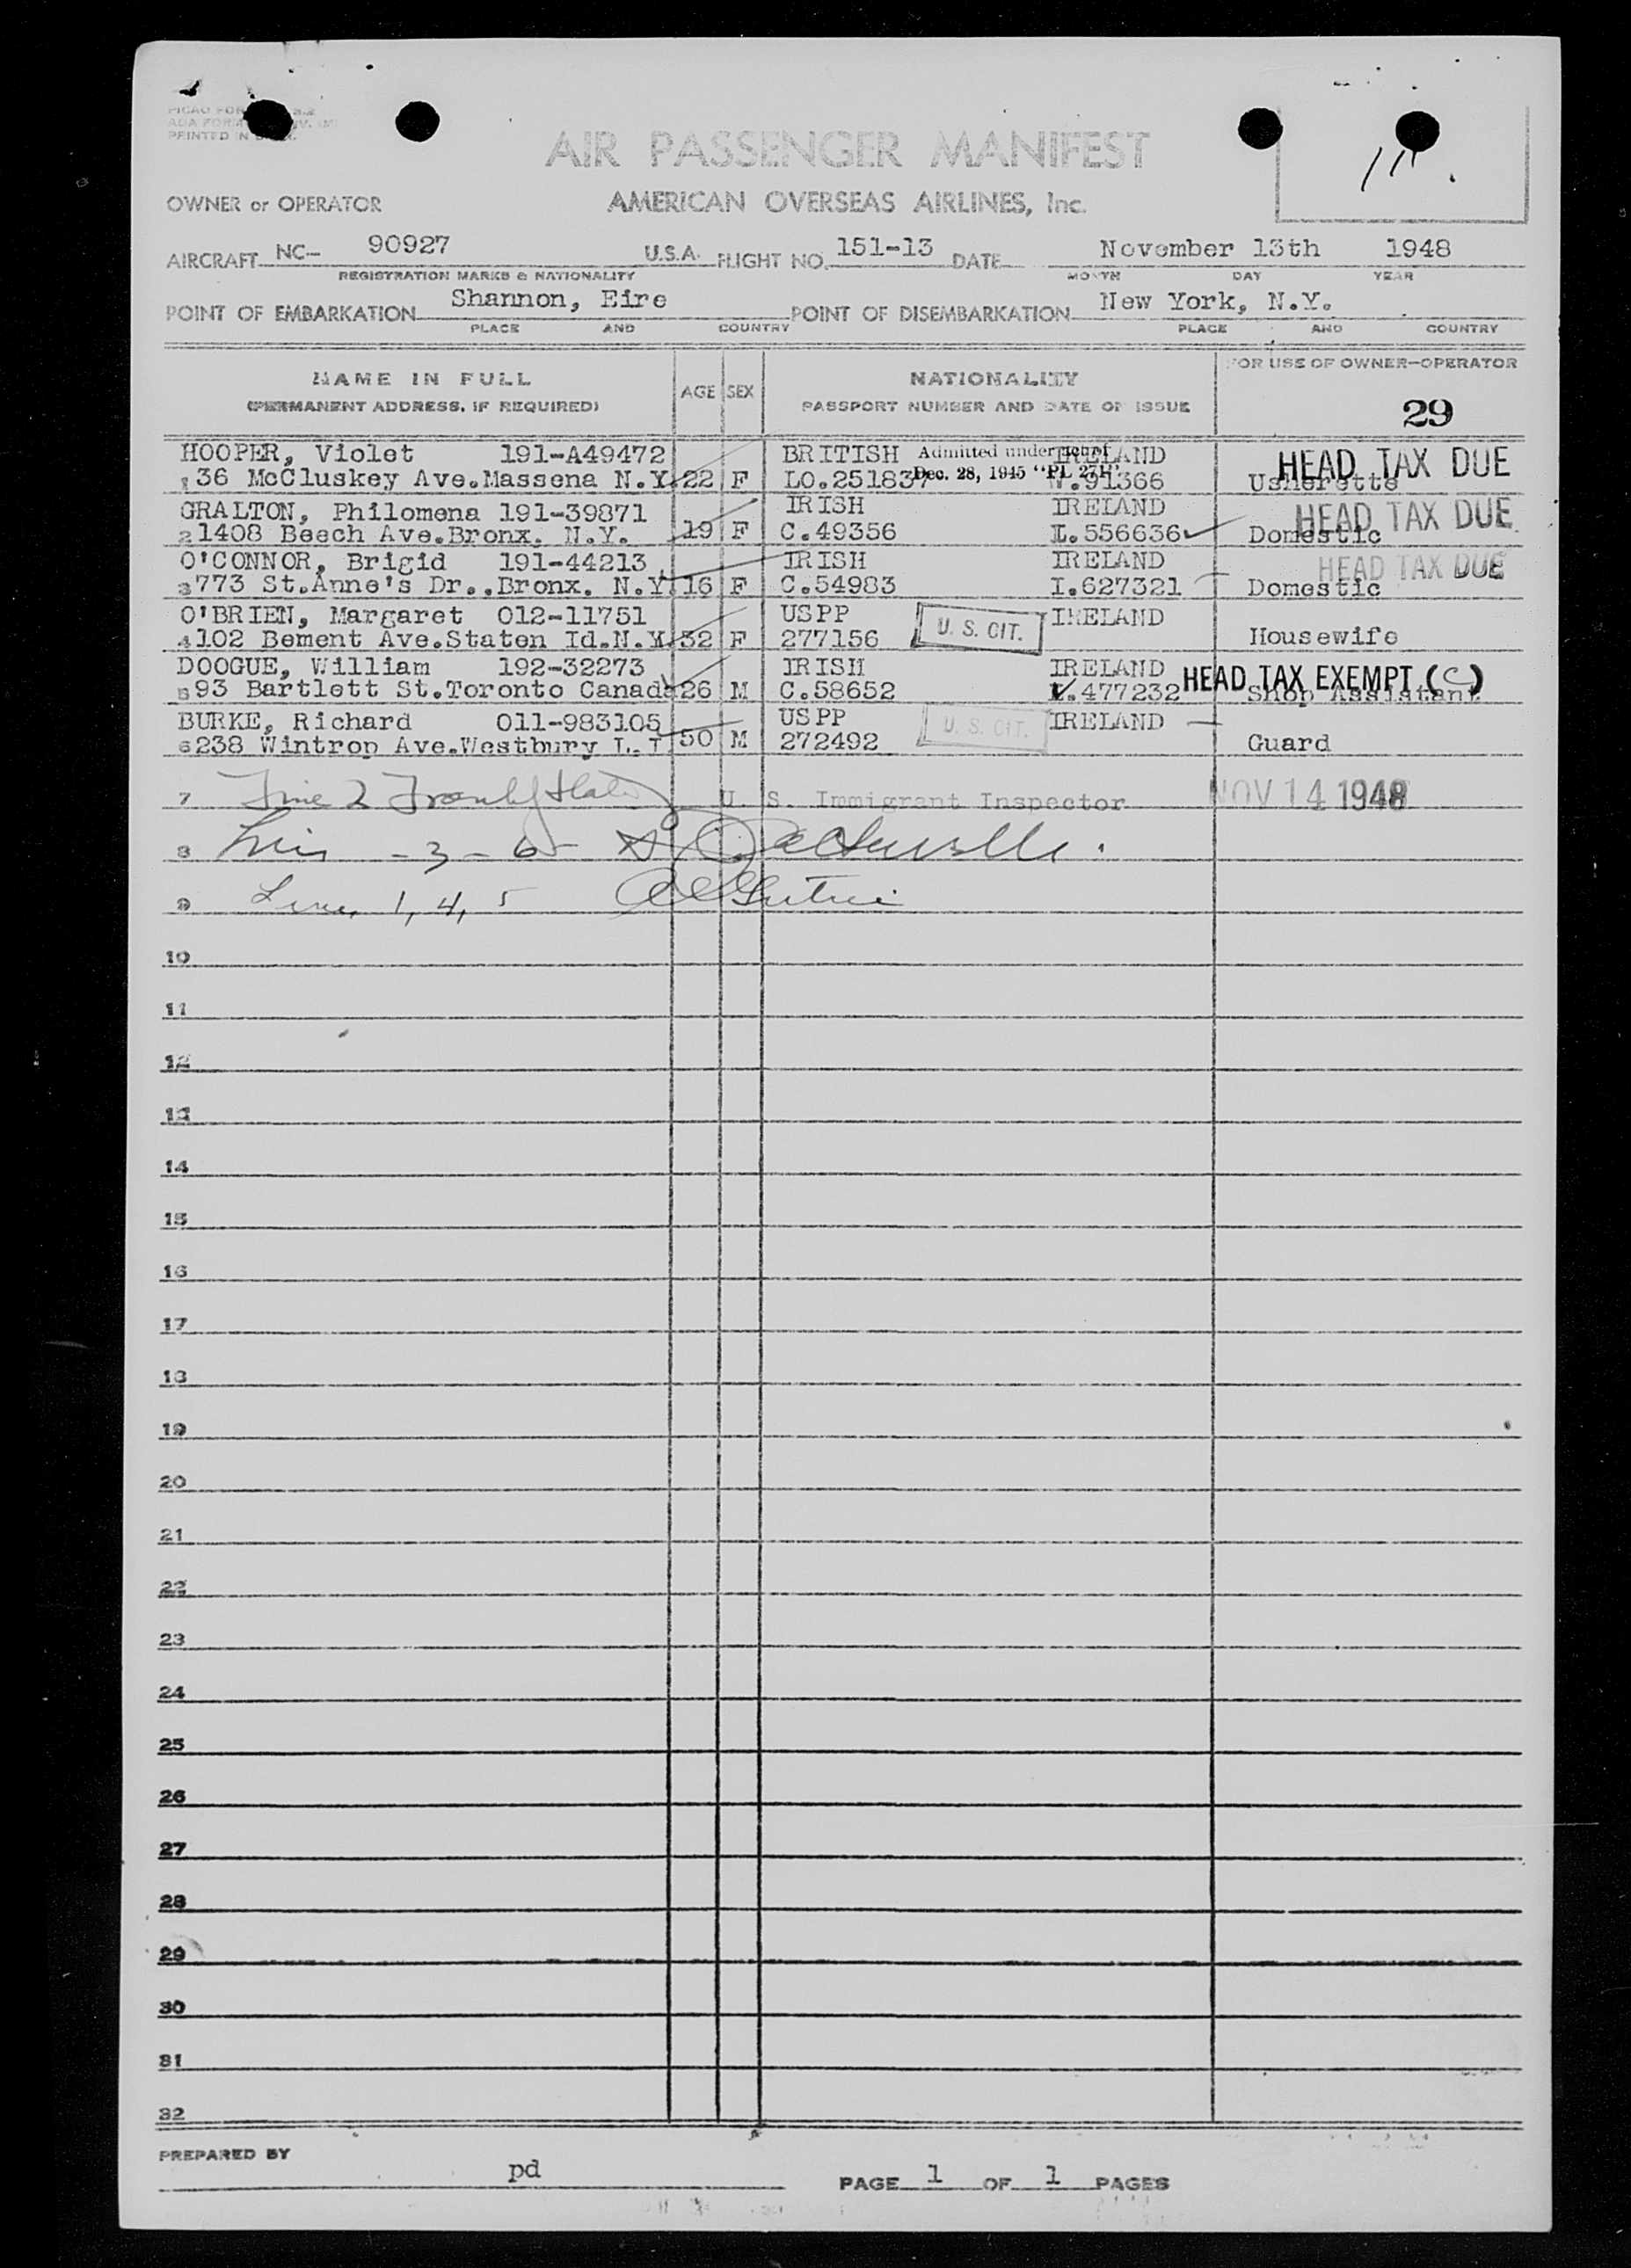 PRINTED IN
AIR PASSENGER MANIFEST
OWNER or OPERATOR AMERICAN OVERSEAS AIRLINES, Inc.
AIRCRAFT NC- 90927 U.S.A. FLIGHT NO. 151-13 DATE November 13th 1948
REGISTRATION MARKS & NATIONALITY MONTH DAY YEAR
POINT OF EMBARKATION Shannon, Eire POINT OF DISEMBARKATION New York, N.Y.
PLACE AND COUNTRY PLACE AND COUNTRY
NAME IN FULL AGE SEX NATIONALITY FOR USE OF OWNER-OPERATOR
(PERMANENT ADDRESS, IF REQUIRED) PASSPORT NUMBER AND DATE OF ISSUE 29
HOOPER, Violet 191-A49472 BRITISH Admitted under IRELAND HEAD TAX DUE
1 36 McCluskey Ave.Massena N.Y. 22 F LO.251837 Dec. 28, 1945 "PL 271" V.91366 Usherette
GRALTON, Philomena 191-39871 IRISH IRELAND HEAD TAX DUE
2 1408 Beech Ave.Bronx. N.Y. 19 F C.49356 L.556636 Domestic
O'CONNOR, Brigid 191-44213 IRISH IRELAND HEAD TAX DUE
3 773 St.Anne's Dr.,Bronx. N.Y. 16 F C.54983 I.627321 Domestic
O'BRIEN, Margaret 012-11751 USPP U. S. CIT. IRELAND
4 102 Bement Ave.Staten Id.N.Y. 32 F 277156 Housewife
DOOGUE, William 192-32273 IRISH IRELAND HEAD TAX EXEMPT (C)
5 93 Bartlett St.Toronto Canada 26 M C.58652 V.477232 Shop Assistant
BURKE, Richard 011-983105 USPP U. S. CIT. IRELAND
6 238 Wintrop Ave.Westbury L.I 50 M 272492 Guard
7 Line 2 U. S. Immigrant Inspector NOV 14 1948
8 - 3 - 6
9 Line 1, 4, 5
10
11
12
13
14
15
16
17
18
19
20
21
22
23
24
25
26
27
28
29
30
31
32
PREPARED BY pd PAGE 1 OF 1 PAGES